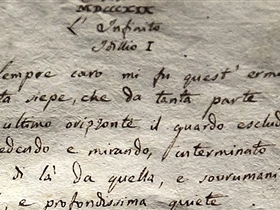 MDCCCXIX
L' Infinito
Idillio I
empre caro mi fu quest' erm
ta siepe, che da tanta parte
ultimo orizzonte il guardo esclud
edendo e mirando, interminato
di là da quella, e sovrumani
, e profondissima quiete